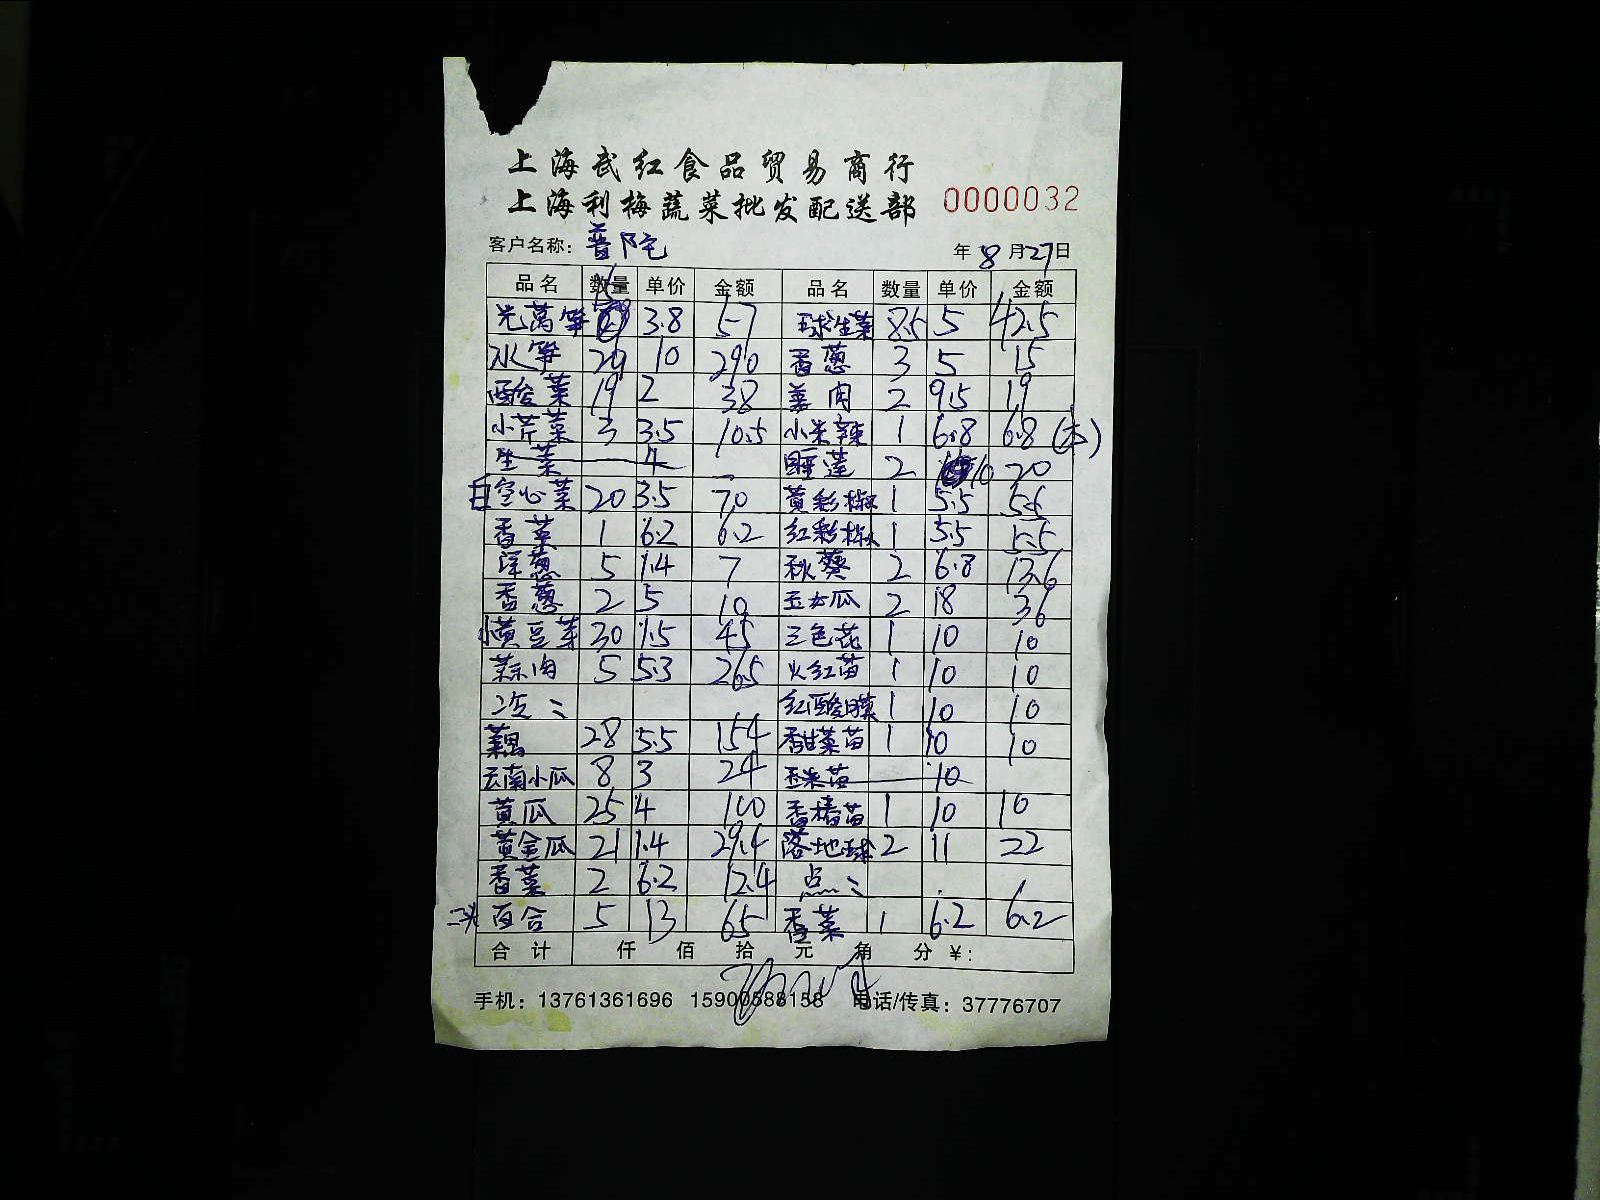 上海武红食品贸易商行
上海利梅蔬菜批发配送部 0000032
客户名称：普陀 年8月27日
品名 数量 单价 金额 品名 数量 单价 金额
光莴笋 15 3.8 57 球生菜 8.5 5 42.5
水笋 29 10 290 香葱 3 5 15
酸菜 19 2 38 姜肉 2 9.5 19
小芹菜 3 3.5 10.5 小米辣 1 6.8 6.8
生菜 4 睡莲 2 10 20
空心菜 20 3.5 70 黄彩椒 1 5.5 5.5
香菜 1 6.2 6.2 红彩椒 1 5.5 5.5
洋葱 5 1.4 7 秋葵 2 6.8 13.6
香葱 2 5 10 玉女瓜 2 18 36
小黄豆芽 30 1.5 45 三色花 1 10 10
蒜肉 5 5.3 26.5 火红苗 1 10 10
次二 红酸膜 1 10 10
藕 28 5.5 154 香甜菜苗 1 10 10
云南小瓜 8 3 24 玉米苗 10
黄瓜 25 4 100 香椿苗 1 10 10
黄金瓜 21 1.4 29.4 落地球 2 11 22
香菜 2 6.2 12.4 点二
二头百合 5 13 65 香菜 1 6.2 6.2
合计 仟 佰 拾 元 角 分 ¥：
手机：13761361696 15900588158 电话/传真：37776707